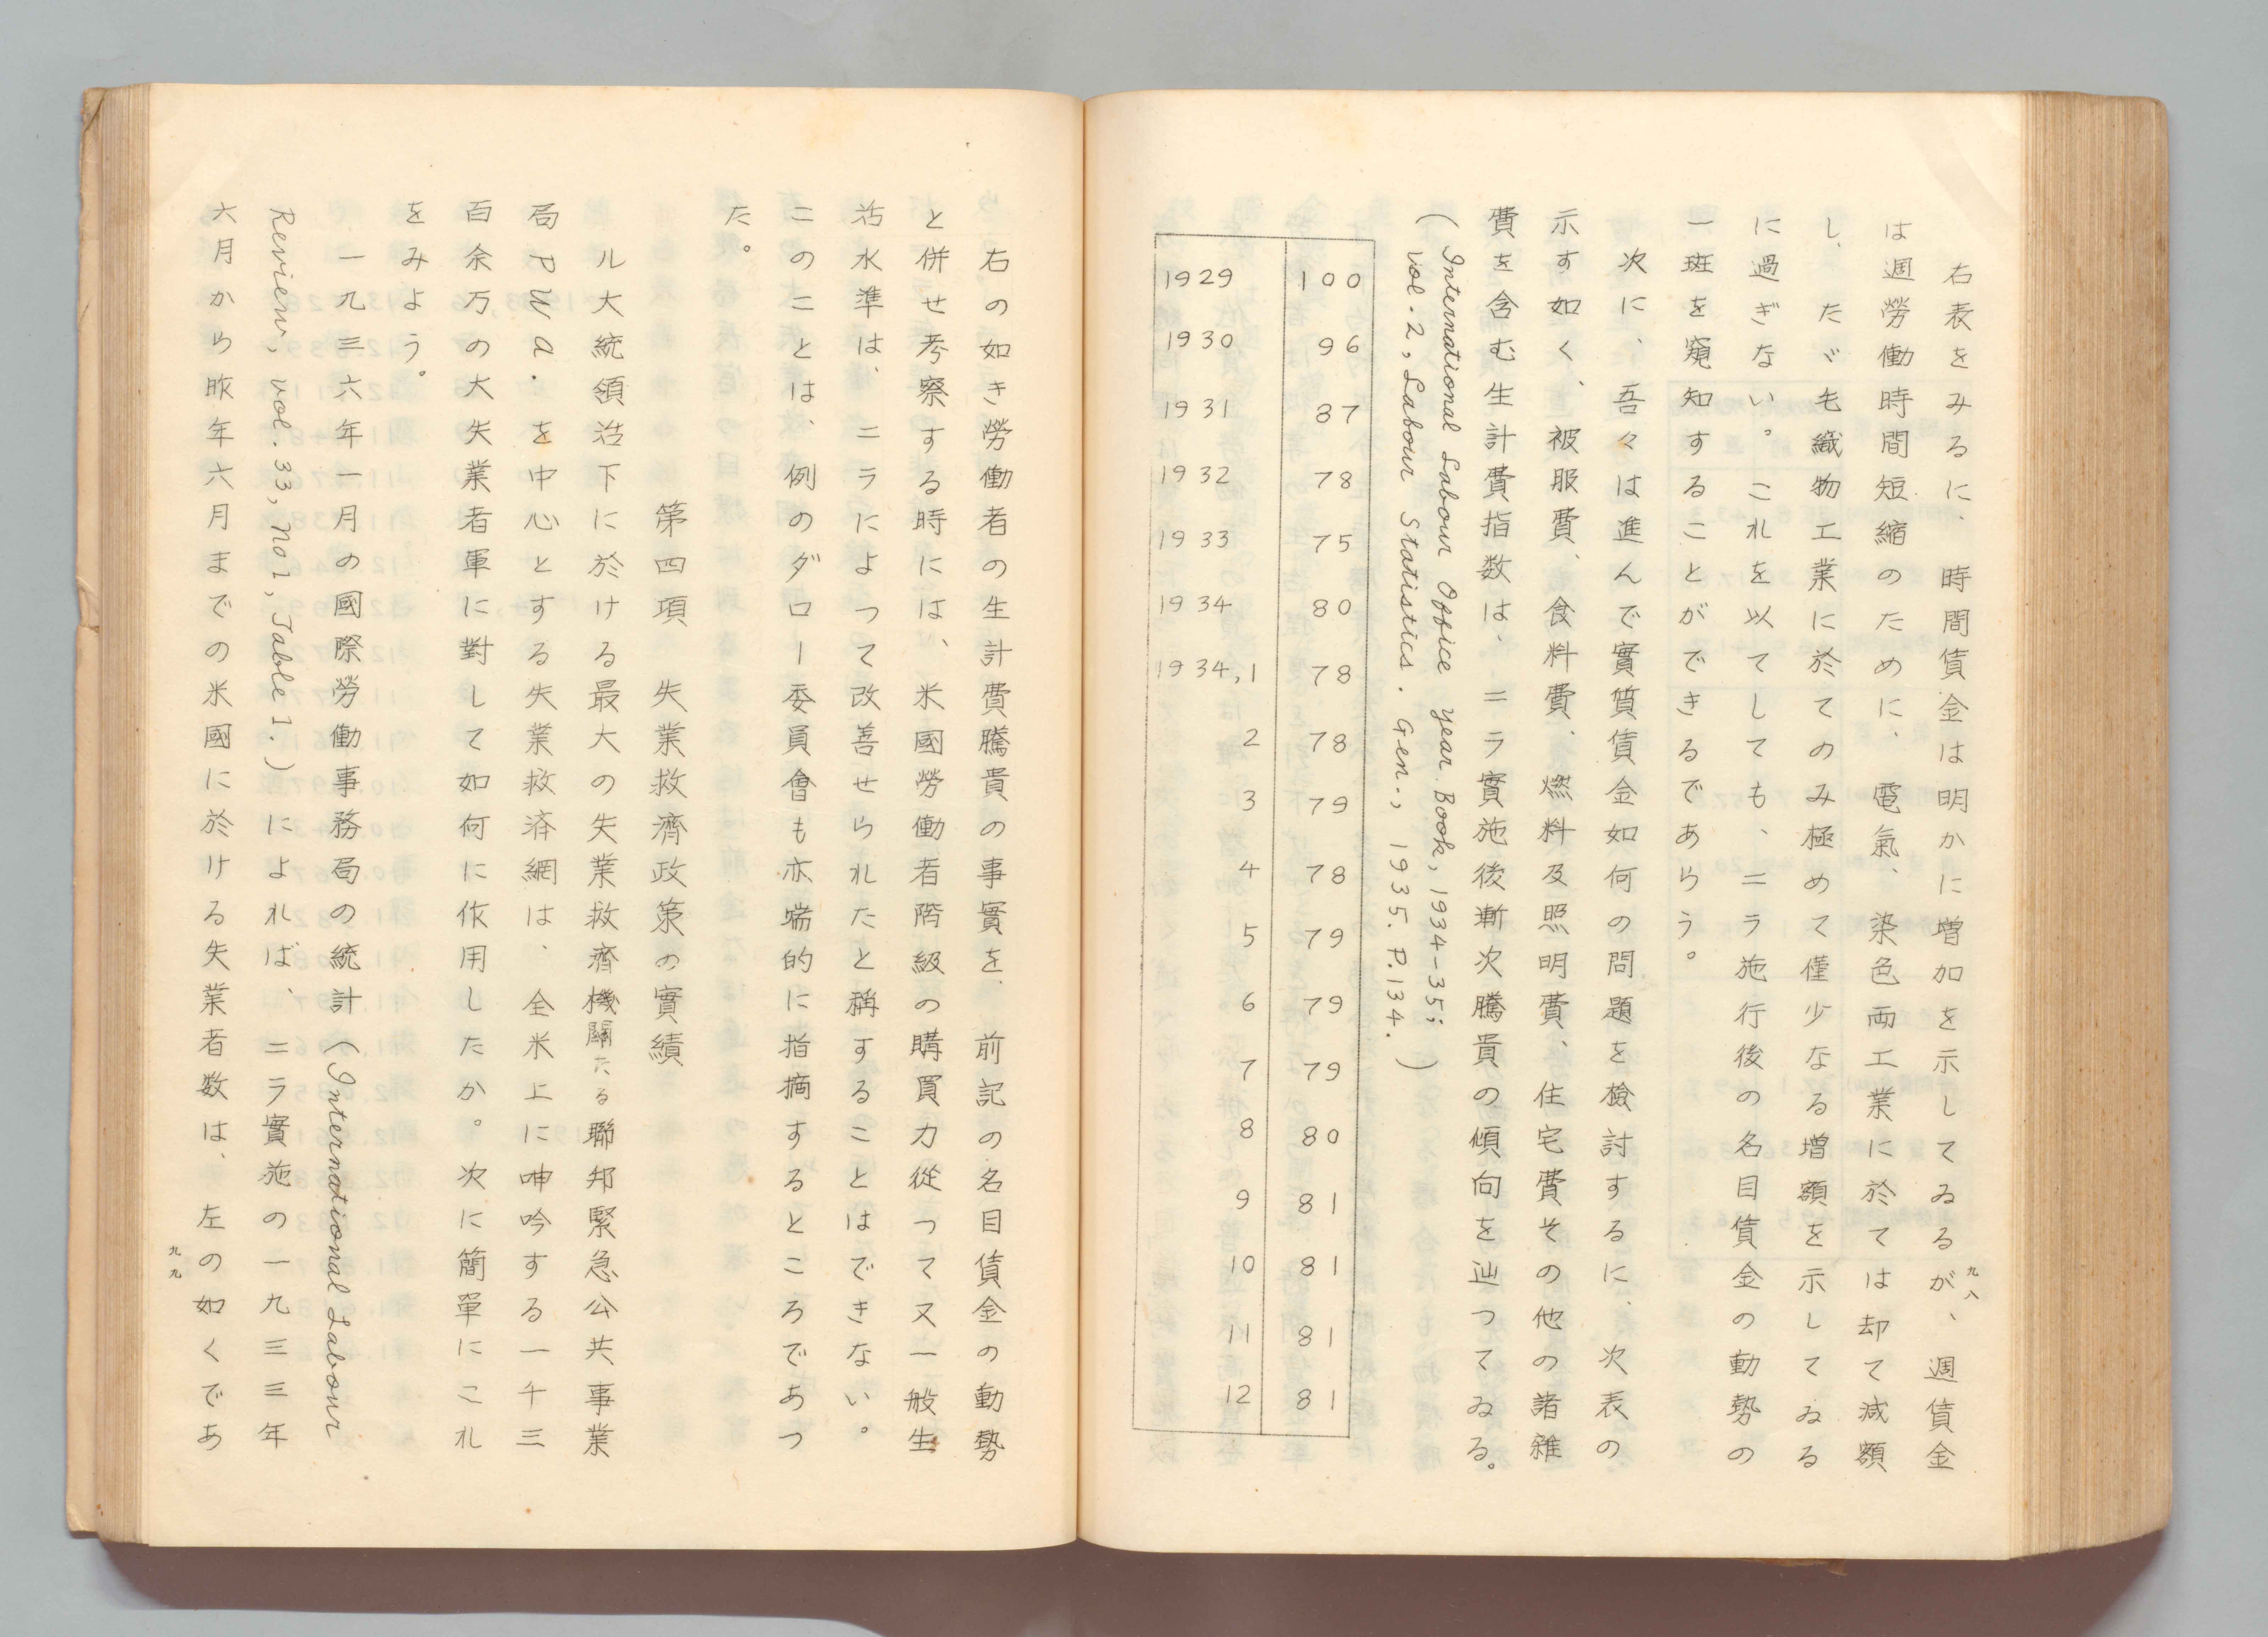 右表をみるに、時間賃金は明かに増加を示してゐるが、週賃金
は週勞働時間短縮のために、電氣、染色両工業に於ては却て減額
し、たゞ毛織物工業に於てのみ極めて僅少なる増額を示してゐる
に過ぎない。これを以てしても、ニラ施行後の名目賃金の動勢の
一斑を窺知することができるであらう。
次に、吾々は進んで實質賃金如何の問題を檢討するに、次表の
示す如く、被服費、食料費、燃料及照明費、住宅費その他の諸雜
費を含む生計費指数は、ニラ實施後漸次騰貴の傾向を辿つてゐる。
(International Labour Office Year Book, 1934-35;
vol. 2, Labour Statistics. Gen., 1935. P.134.)
1929 100
1930 96
1931 87
1932 78
1933 75
1934 80
1934,1 78
2 78
3 79
4 78
5 79
6 79
7 79
8 80
9 81
10 81
11 81
12 81
九八
右の如き勞働者の生計費騰貴の事實を、前記の名目賃金の動勢
と併せ考察する時には、米國勞働者階級の購買力従つて又一般生
活水準は、ニラによつて改善せられたと稱することはできない。
このことは、例のダロー委員會も亦端的に指摘するところであつ
た。
第四項 失業救濟政策の實績
ル大統領治下に於ける最大の失業救濟機關たる聯邦緊急公共事業
局P.W.A.を中心とする失業救済網は、全米上に呻吟する一千三
百余万の大失業者軍に對して如何に作用したか。次に簡單にこれ
をみよう。
一九三六年一月の國際勞働事務局の統計(International Labour
Review, vol.33, No1, Table 1.)によれば、ニラ實施の一九三三年
六月から昨年六月までの米國に於ける失業者数は、左の如くであ
九九